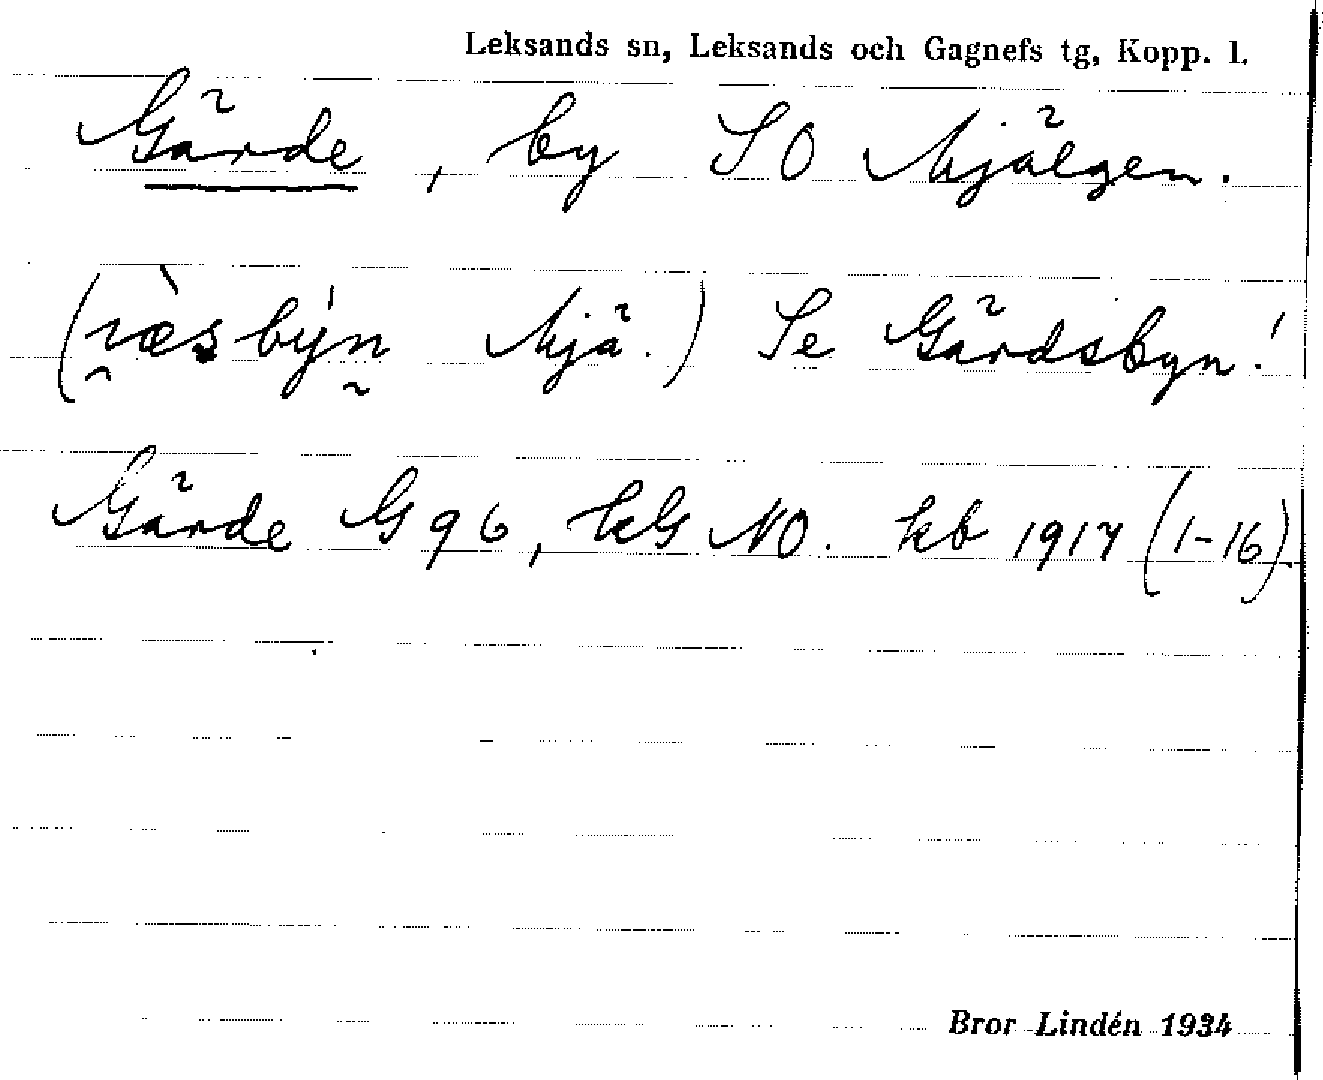 Leksands sn, Leksands och Gagnefs tg, Kopp. l.
Gärde, by SO Mjälgen.
(ræ̀sbýn Mjä.) Se Gärdsbyn!
Gärde G 96, kG NO. kb 1917 (1-16).
Bror Lindén 1934